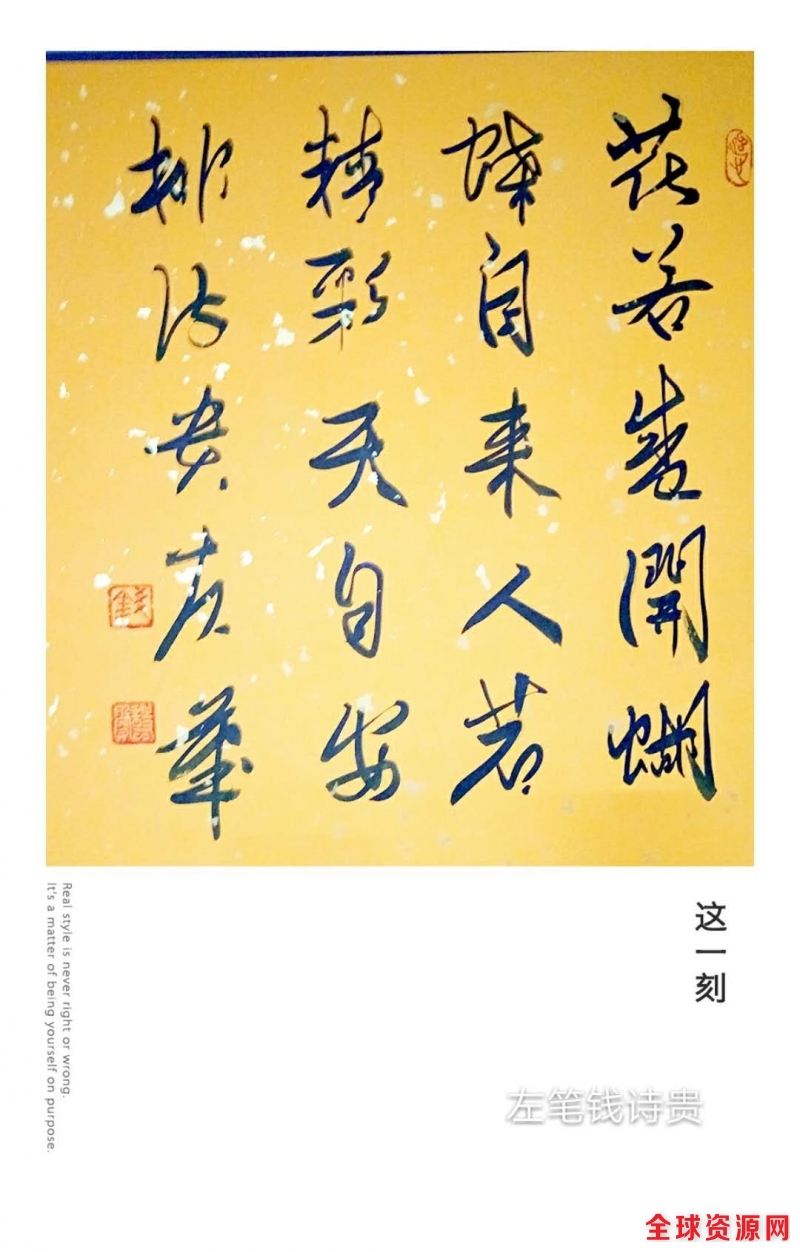 花若盛開蝴
蝶自来人若
精彩天自安
排诗贵左笔
钱
这一刻
左笔钱诗贵
Real style is never right or wrong.
It's a matter of being yourself on purpose.
全球资源网